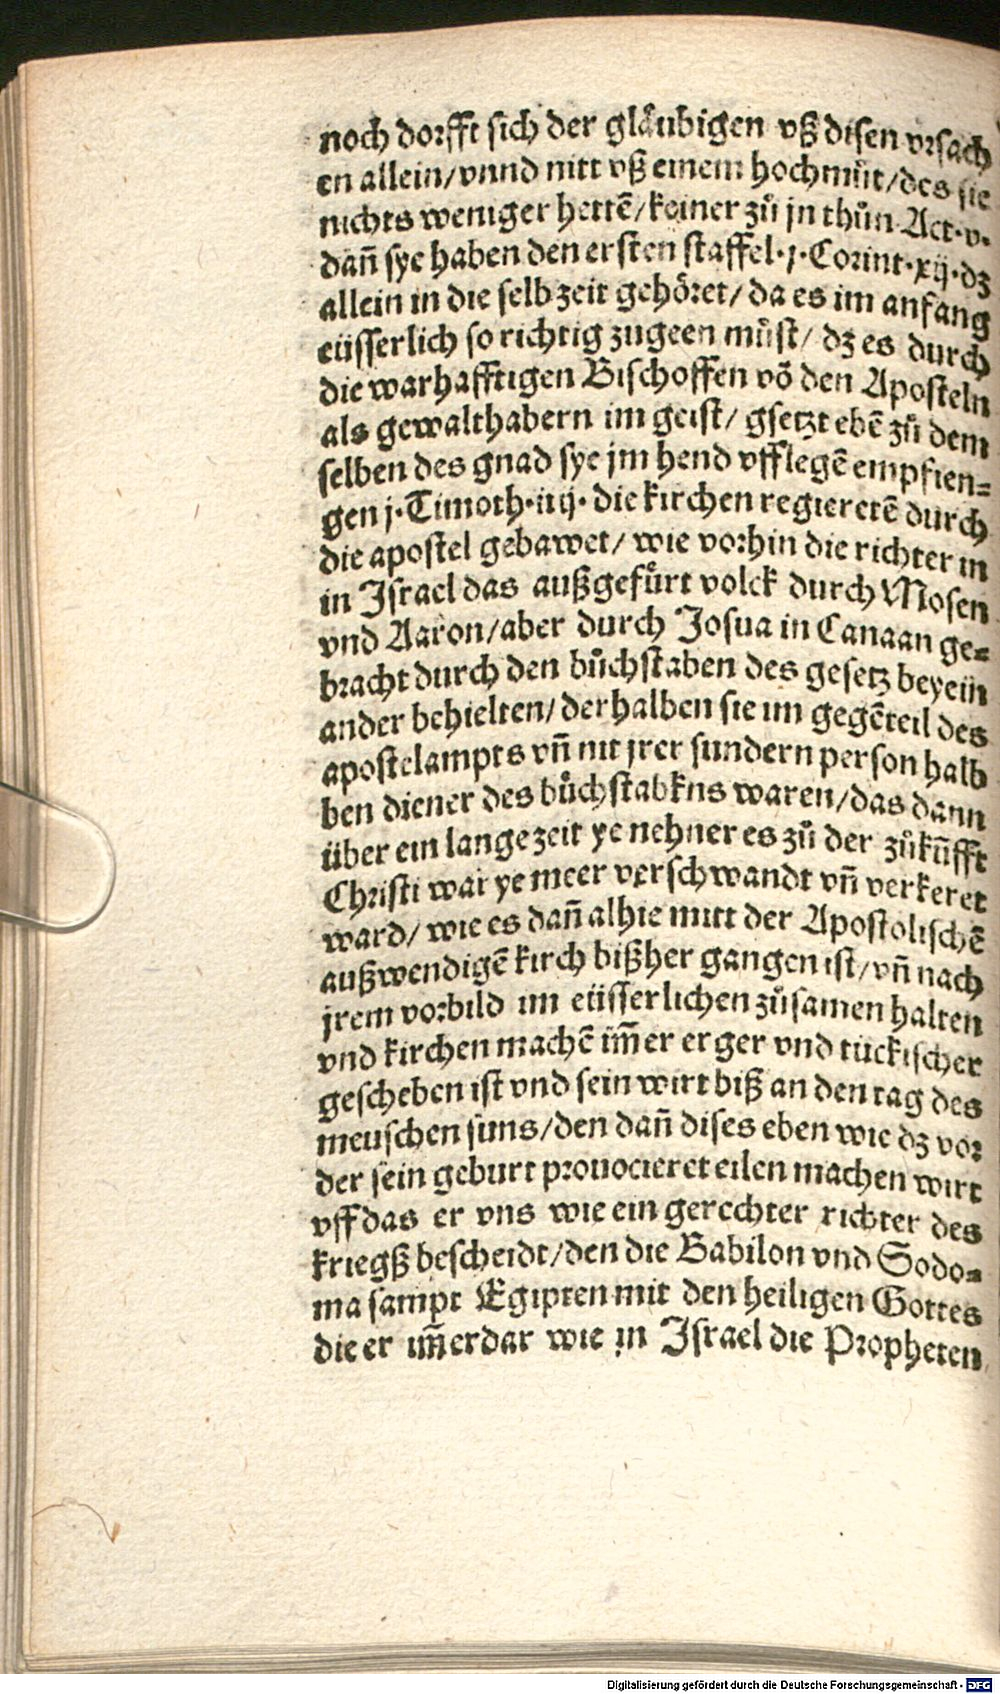 noch dorfft sich der glaͤubigen vß disen vrsach
en allein/vnnd nitt vß einem hochmuͤt/des sie
nichts weniger hettē/keiner zuͦ jn thuͦn Act·v·
dañ sye haben den ersten staffel·j·Corint·xij·dz
allein in die selb zeit gehoͤret/da es im anfang
eüsserlich so richtig zugeen muͤst/dz es durch
die warhafftigen Bischoffen vō den Aposteln
als gewalthabern im geist/gsetzt ebē zuͦ dem
selben des gnad sye jm hend vfflegē empfien⸗
gen j·Timoth·iiij·die kirchen regieretē durch
die apostel gebawet/wie vorhin die richter in
in Israel das außgefuͤrt volck durch Mosen
vnd Aaron/aber durch Josua in Canaan ge⸗
bracht durch den buͦchstaben des gesetz beyein
ander behielten/derhalben sie im gegēteil des
apostelampts vñ nit jrer sundern person halb
ben diener des buͦchstabkns waren/das dann
über ein lange zeit ye nehner es zuͦ der zuͦkūfft
Christi war ye meer verschwandt vñ verkeret
ward/wie es dañ alhie mitt der Apostolischē
außwendigē kirch bißher gangen ist/vñ nach
jrem vorbild im eüsserlichen zuͦsamen halten
vnd kirchen machē im̄er erger vnd tückischer
gescheben ist vnd sein wirt biß an den tag des
meuschen suns/den dañ dises eben wie dz vor
der sein geburt prouocieret eilen machen wirt
vff das er vns wie ein gerechter richter des
kriegß bescheidt/den die Babilon vnd Sodo⸗
ma sampt Egipten mit den heiligen Gottes
die er im̄erdar wie in Israel die Propheten
Digitalisierung gefördert durch die Deutsche Forschungsgemeinschaft - DFG